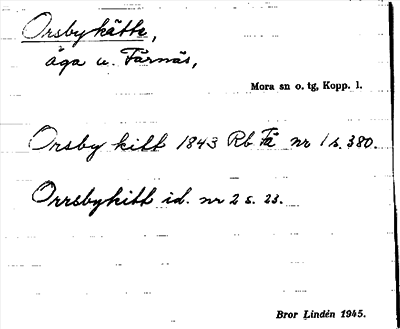 Orsbykätte,
äga u. Färnäs,
Mora sn o. tg, Kopp. l.
Orsby kitt 1843 Rb Fä nr 1 s. 380.
Orrsbykitt id. nr 2 s. 23.
Bror Lindén 1945.